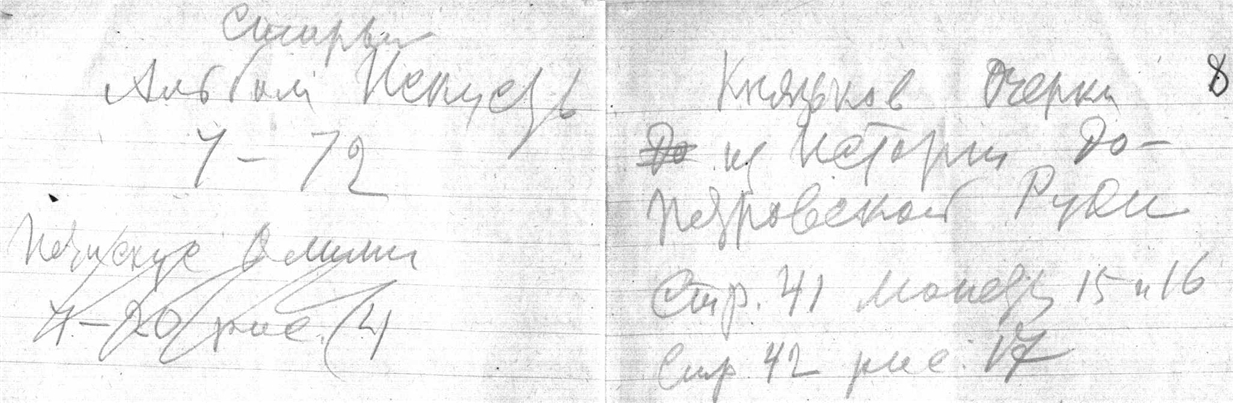 Старый
Альбом Искусств
7 – 72
7–20 рис. 4
8
Князьков Очерки
До из Истории До-
Петровской Руси
Стр. 41 Монеты 15 и 16
Стр 42 рис. 17